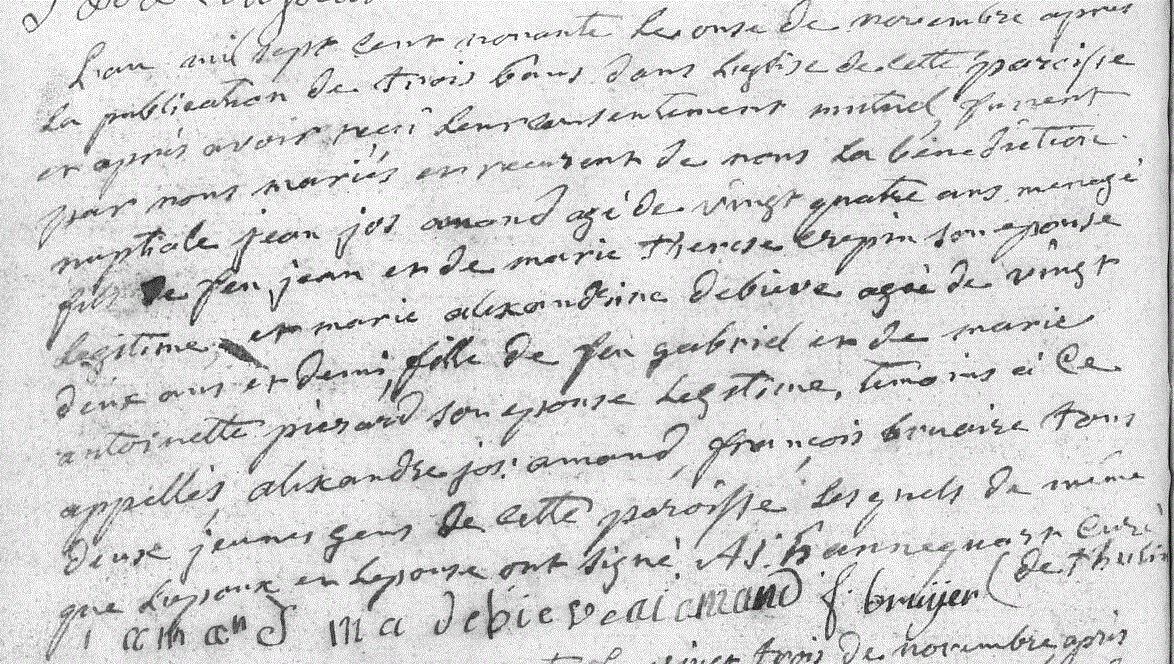 L'an mil sept cent nonante le onse de novembre apres
la publication de trois bans dans l'eglise de cette paroisse
et après avoir reçû leur consentement mutuel furent
par nous mariés en recurent de nous la bénédiction
nuptiale jean jos amand agé de vingt quatre ans menagé
fils de feu jean et de marie therese crepin son epouse
legitime, et marie alexandrine debieve agée de vingt
deux ans et demi, fille de feu gabriel et de marie
antoinette pierard son epouse legitime, temoins à ce
appellés, alexandre jos: amand, françois bruaire tous
deux jeunes gens de cette paroisse lesquels de même
que l'epoux en l'epouse ont signé A J: hannequart curé
de thulin
amand ma debieve al amand f. bruyer
trois de novembre après